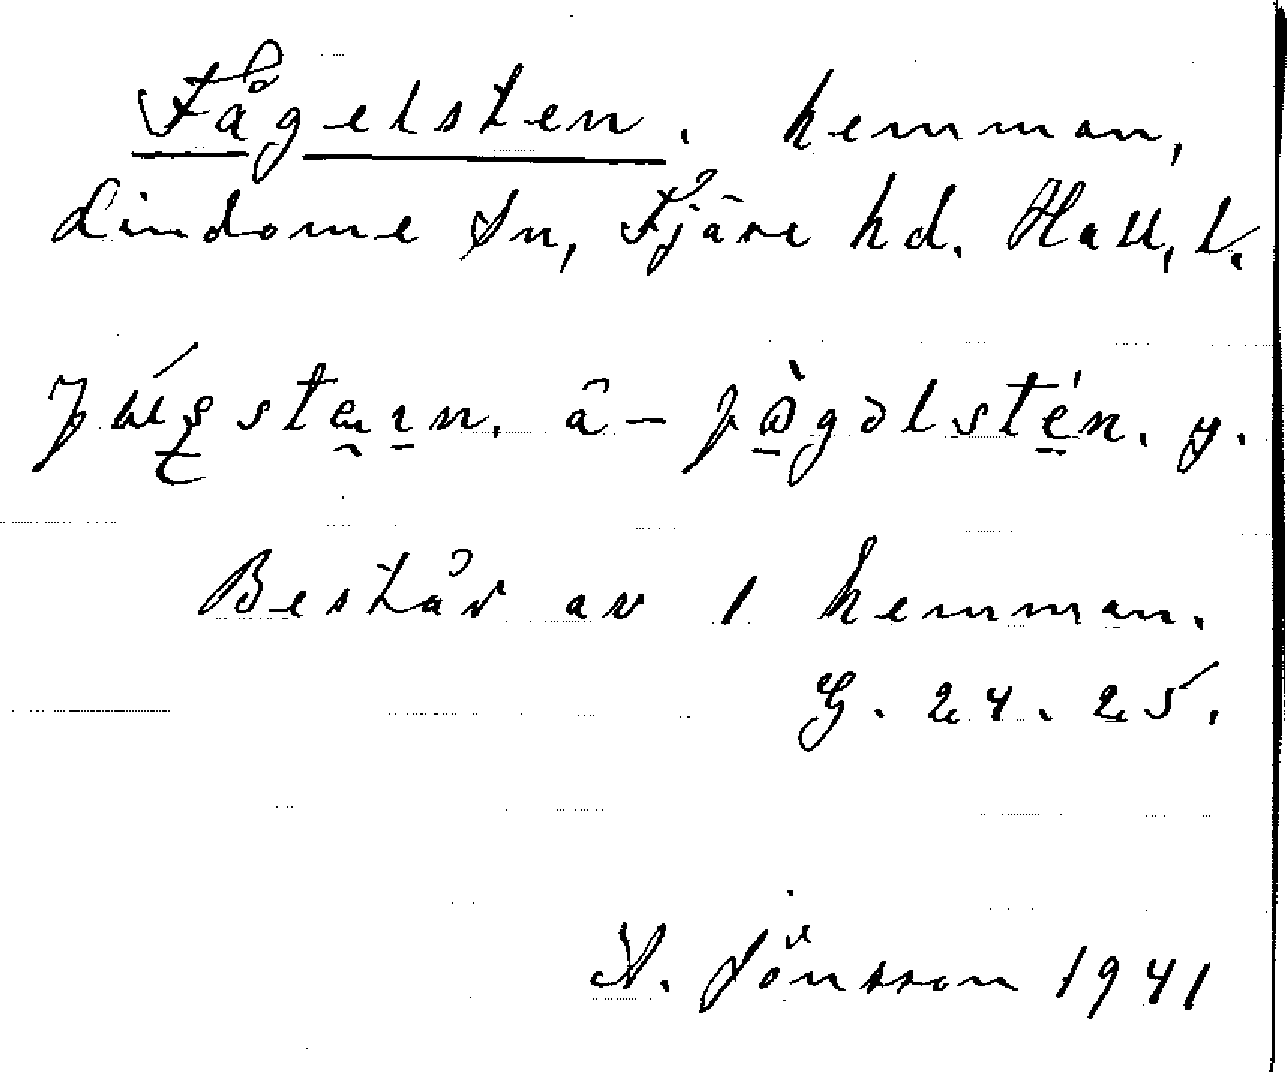 Fågelsten. hemman,
Lindome sn, Fjäre hd. Hall. l.
fågəlstén. y.
Består av 1 hemman.
G. 24. 25.
A. Jönsson 1941